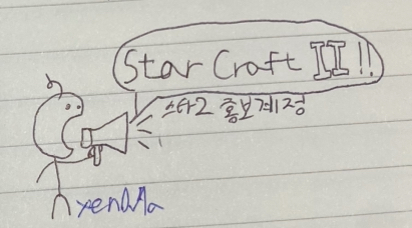 Star Craft II!!
스타2 홍보계정